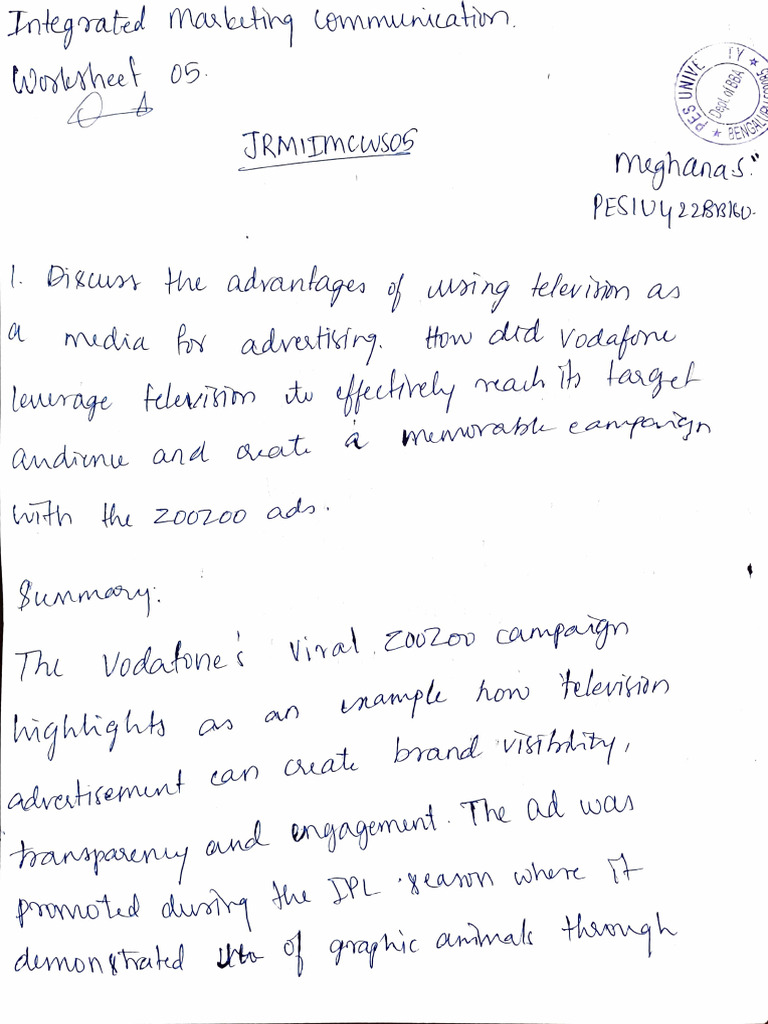 Integrated Marketing Communication.
Worksheet 05.
JRM1IMCWS05
PES UNIVE TY
Dept. of BBA
BENGALURU
Meghana.S."
1. Discuss the advantages of using television as
a media for advertising. How did Vodafone
leverage television to effectively reach its target
audience and create a memorable campaign
with the zoozoo ads.
Summary:
The Vodafone's viral zoozoo campaign
highlights as an example how television
advertisement can create brand visibility,
transparency and engagement. The ad was
promoted during the IPL season where it
demonstrated of graphic animals through